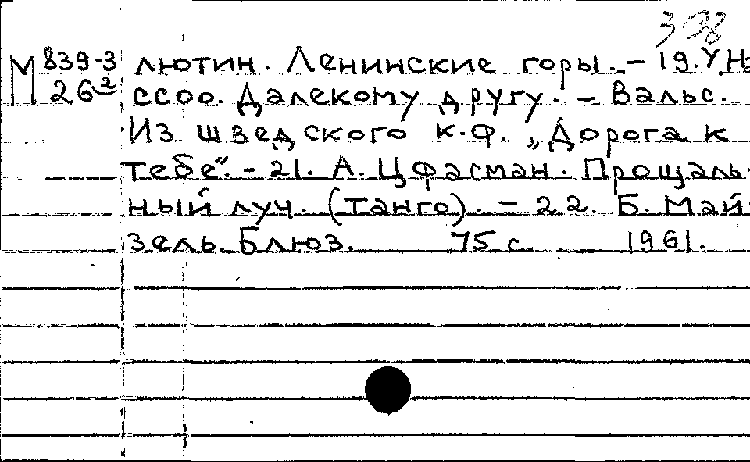 398
М 839-3 лютин. Ленинские горы. – 19. У. Н
26² ссоо. Далекому другу. – Вальс.
Из шведского к.ф. „Дорога к
тебе“. – 21. А. Цфасман. Прощаль-
ный луч. (Танго). – 22. Б. Май-
зель. Блюз. 75 с. 1961.